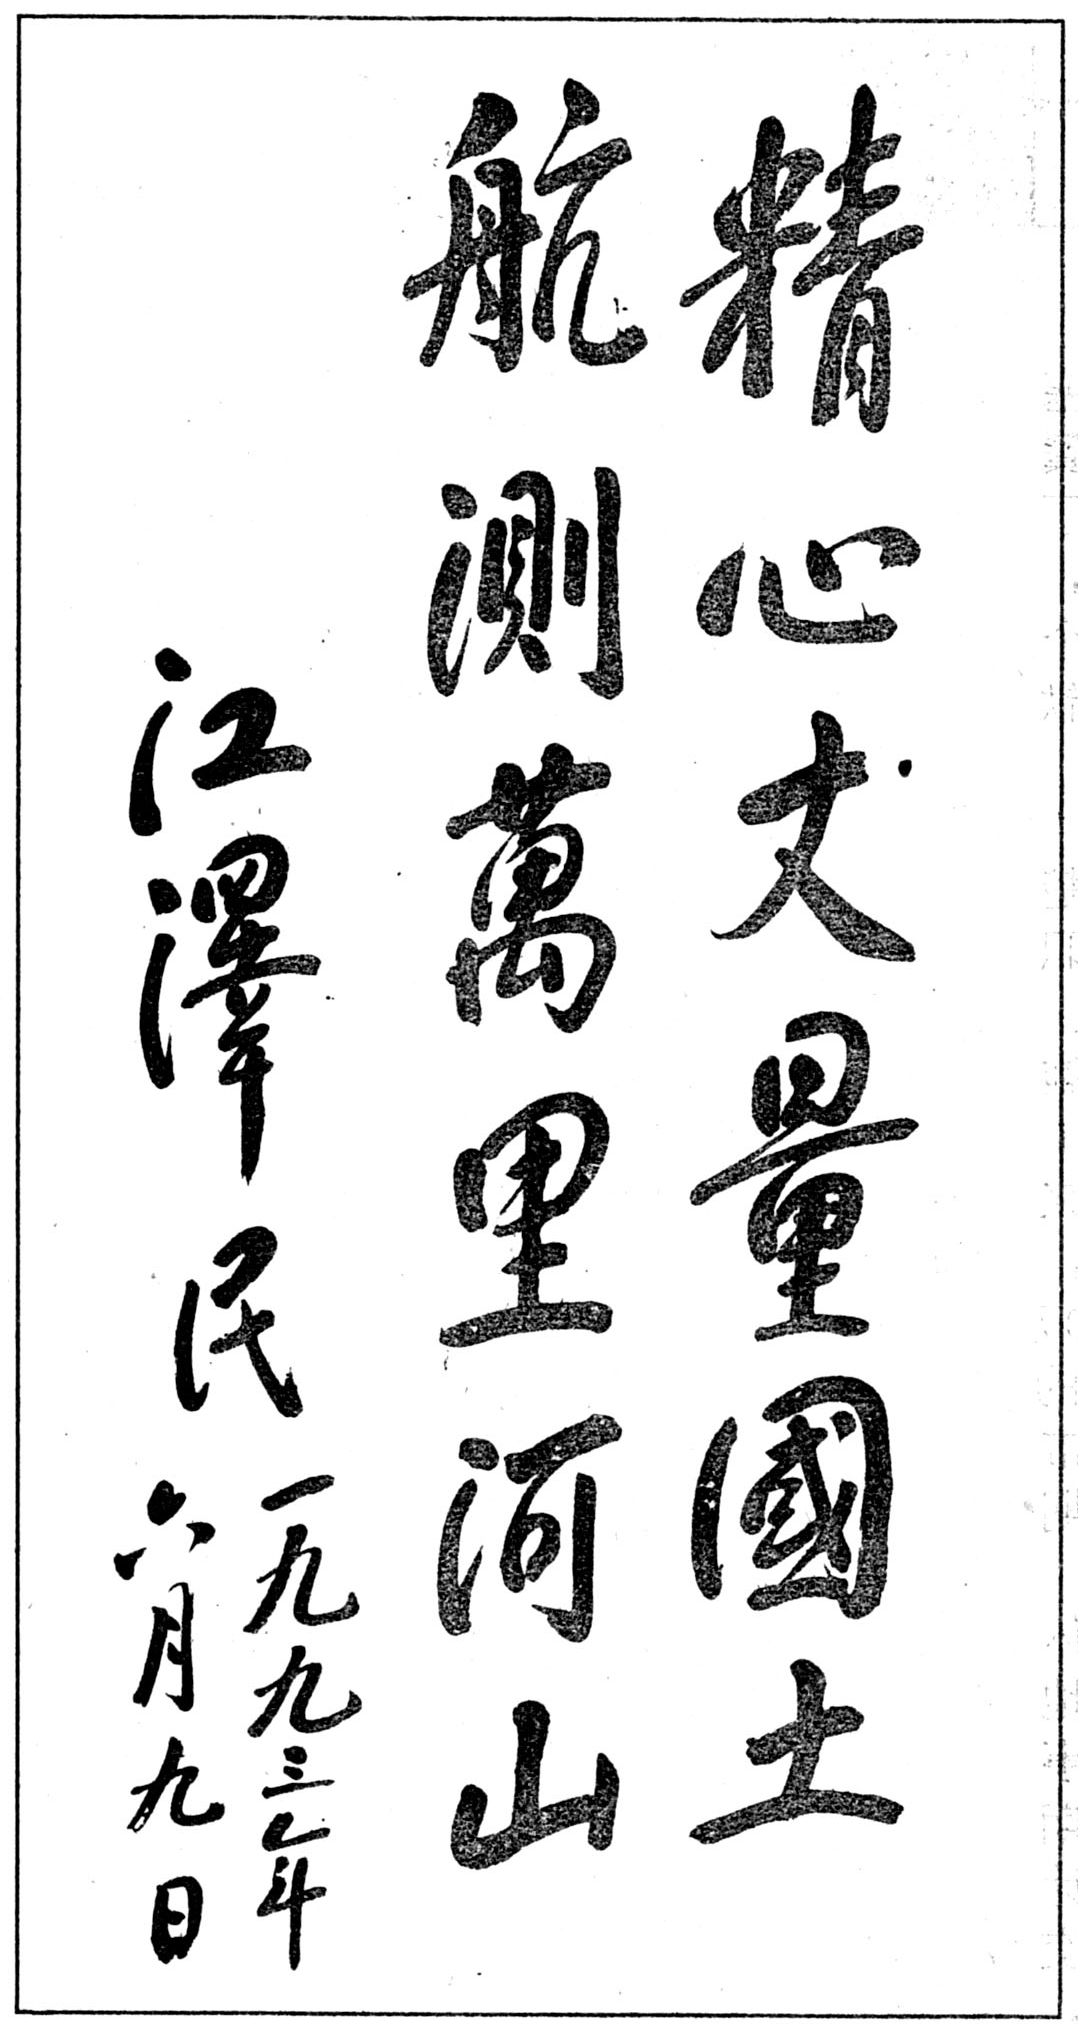 精心丈量國土
航測萬里河山
江澤民
一九九三年
六月九日